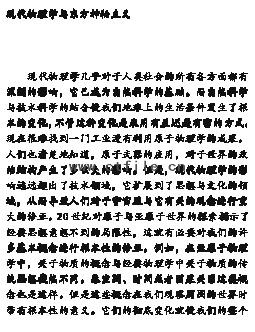 现代物理学与东方神秘主义
现代物理学几乎对于人类社会的所有各方面都有
深刻的影响，它已成为自然科学的基础。而自然科学
与技术科学的结合使我们地球上的生活条件发生了根
本的变化，不管这种变化是有用有益还是有害的方式。
现在很难找到一门工业没有利用原子物理学的成果。
人们也清楚地知道，原子武器的应用，对于世界的政
治结构产生了多么大的影响。但是，现代物理学的影
响远远超出了技术领域，它扩展到了思想与文化的领
域，从而导致人们对于宇宙及与它有关的观念进行重
大的修正。20世纪对原子与亚原子世界的探索揭示了
经典思想意想不到的局限性，这就有必要对我们的许
多基本概念进行根本性的修正。例如，在亚原子物理
学中，关于物质的概念与经典物理学中关于物质的传
统思想截然不同，像空间、时间或者因果关系这些概
念也是这样。但是这些概念在我们观察周围的世界时
带有根本性的意义，它们的彻底变化使我们的整个